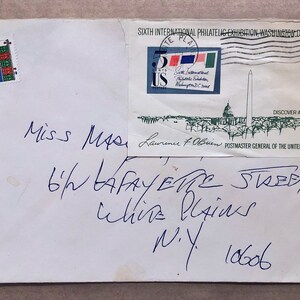 SIXTH INTERNATIONAL PHILATELIC EXHIBITION, WASHINGTON, D.
TE PLAI
5¢
US
Sixth International
Philatelic Exhibition
Washington, D.C.
DISCOVER A
Lawrence F. O'Brien
POSTMASTER GENERAL OF THE UNITED
MISS
LAFAYETTE STREET
WHITE PLAINS
N.Y.
10606